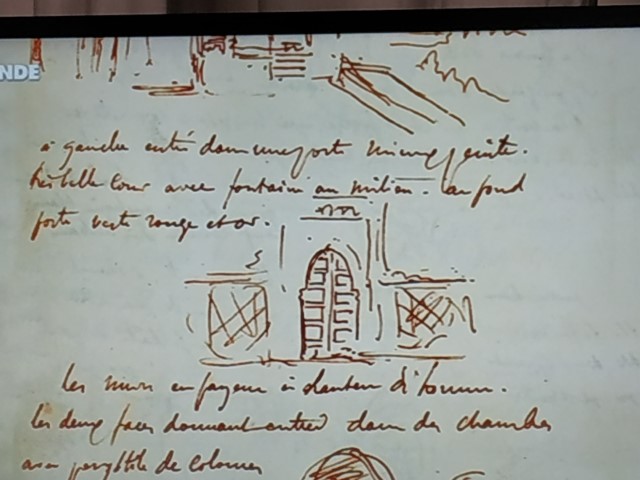 NDE
à gauche entré dans une porte mince, peinte.
très belle cour avec fontaine au milieu. au fond
porte verte rouge et or.
les murs en fayence à hauteur d'homme.
les deux faces donnant entrée dans des chambres
avec peristile de colonnes